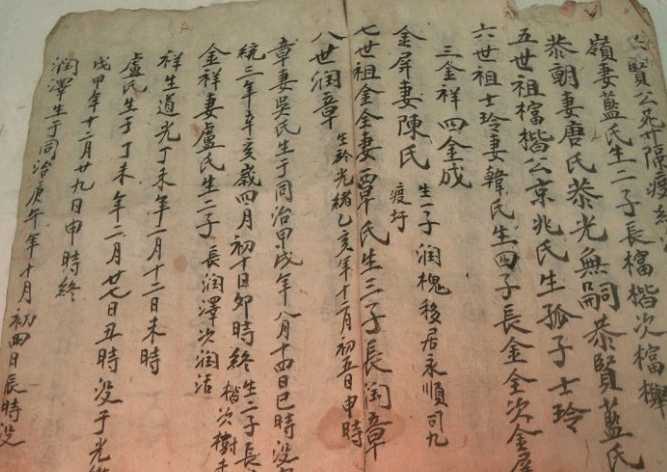 賢公死廾隔
嶺妻藍氏生二子長檔楷次檔
恭朝妻唐氏恭光無嗣恭賢藍氏
五世祖檔楷公京兆氏生孤子士玲
六世祖士玲妻韓氏生四子長金全次金屏
三金祥四金成
金屏妻陳氏生一子潤槐移居永順司九渡圩
七世祖金全妻覃氏生三子長潤章
八世潤章生於光緒乙亥年十一月初五日申時
章妻吳氏生于同治甲戌年八月十四日巳時没
統三年辛亥歲四月初十日卯時終生二子長楷次樹
金祥妻盧氏生二子長潤澤次潤活
祥生道光丁未年一月十二日未時
盧氏生于丁未年二月廿七日丑時没于光緒
戊申年十二月廿九日申時終
潤澤生于同治庚午年十月初四日辰時没